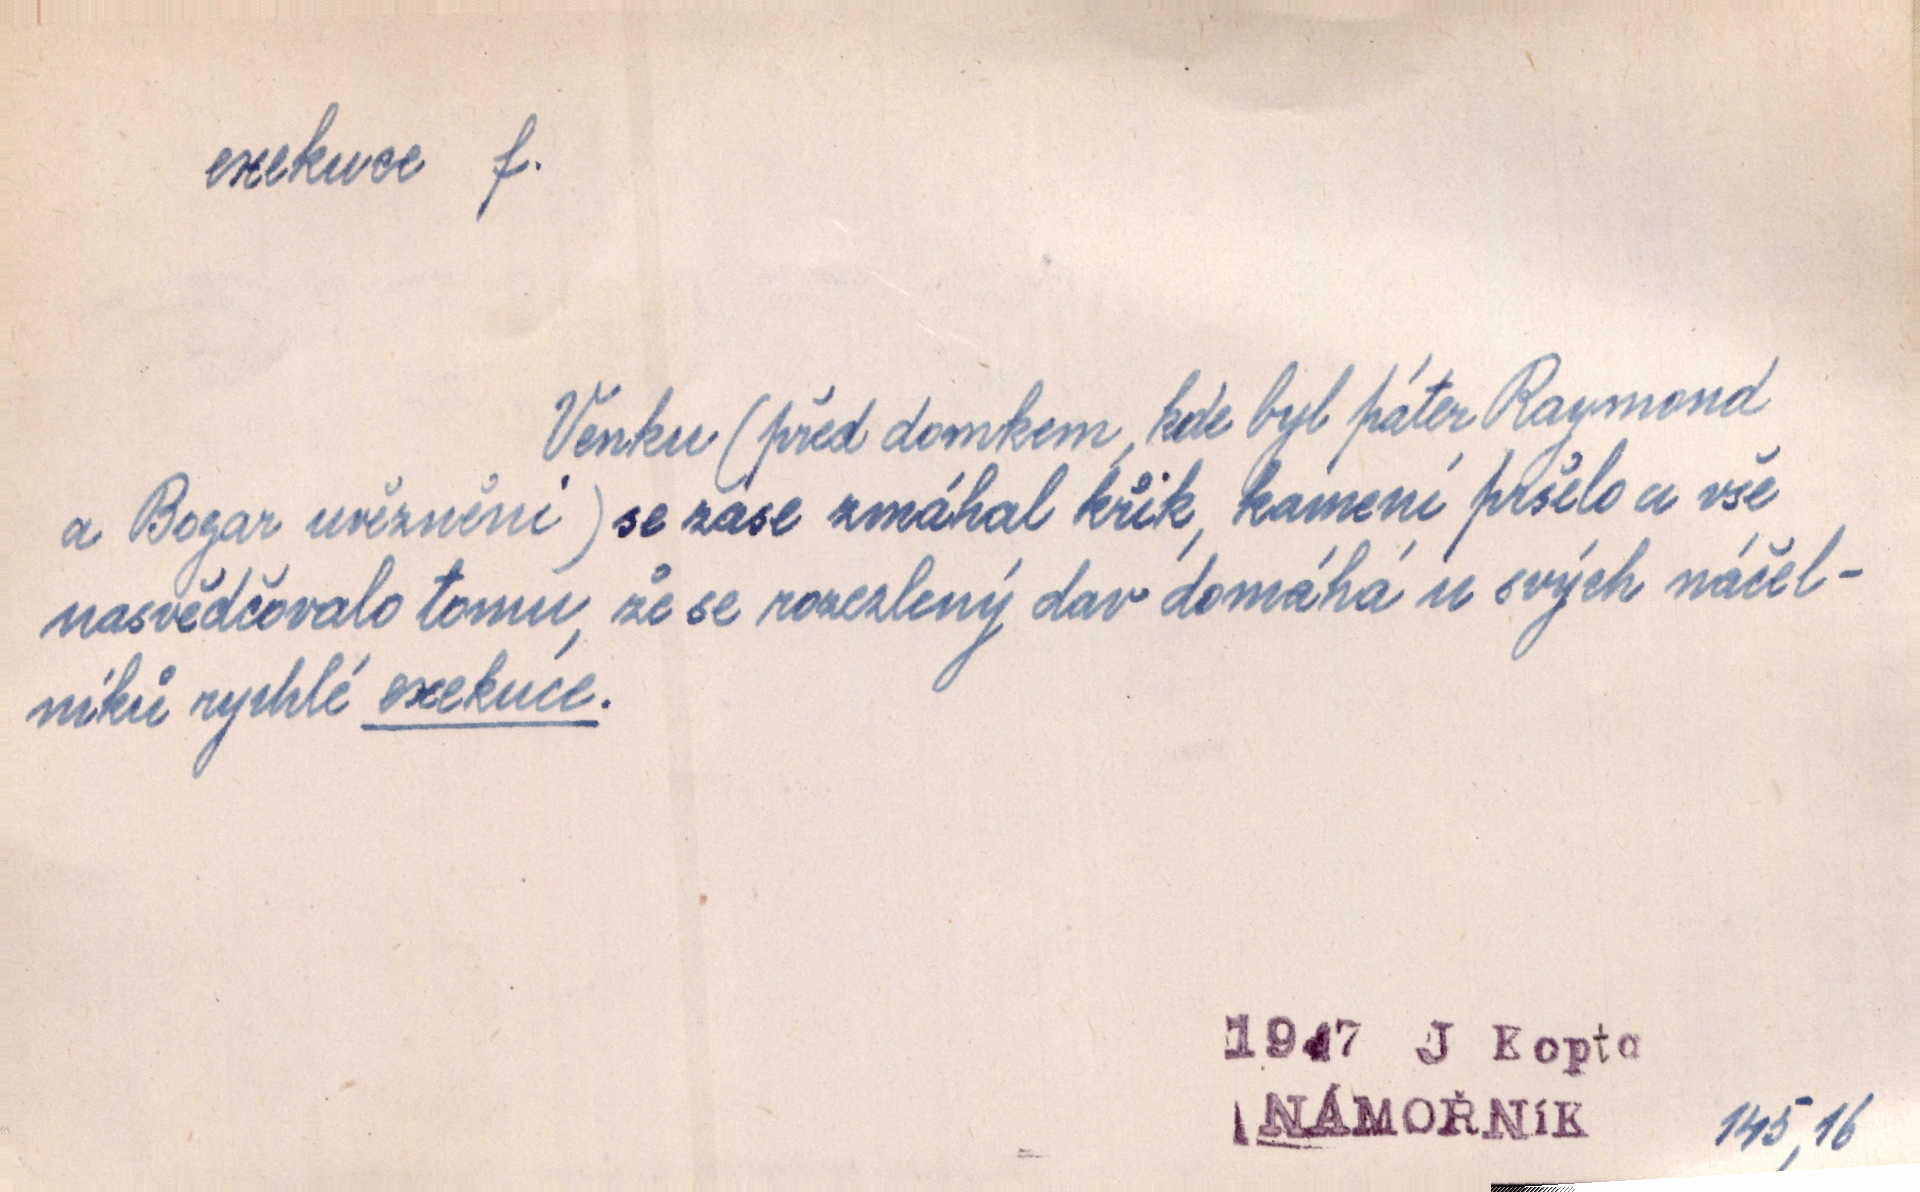 exekuce f.
Venku (před domkem, kde byl páter Raymond
a Bogar uvězněni) se zase zmáhal křik, kamení pršelo a vše
nasvědčovalo tomu, že se rozezlený dav domáhá u svých náčel-
níků rychlé exekuce.
1947 J Kopta
NÁMOŘNÍK 145,16